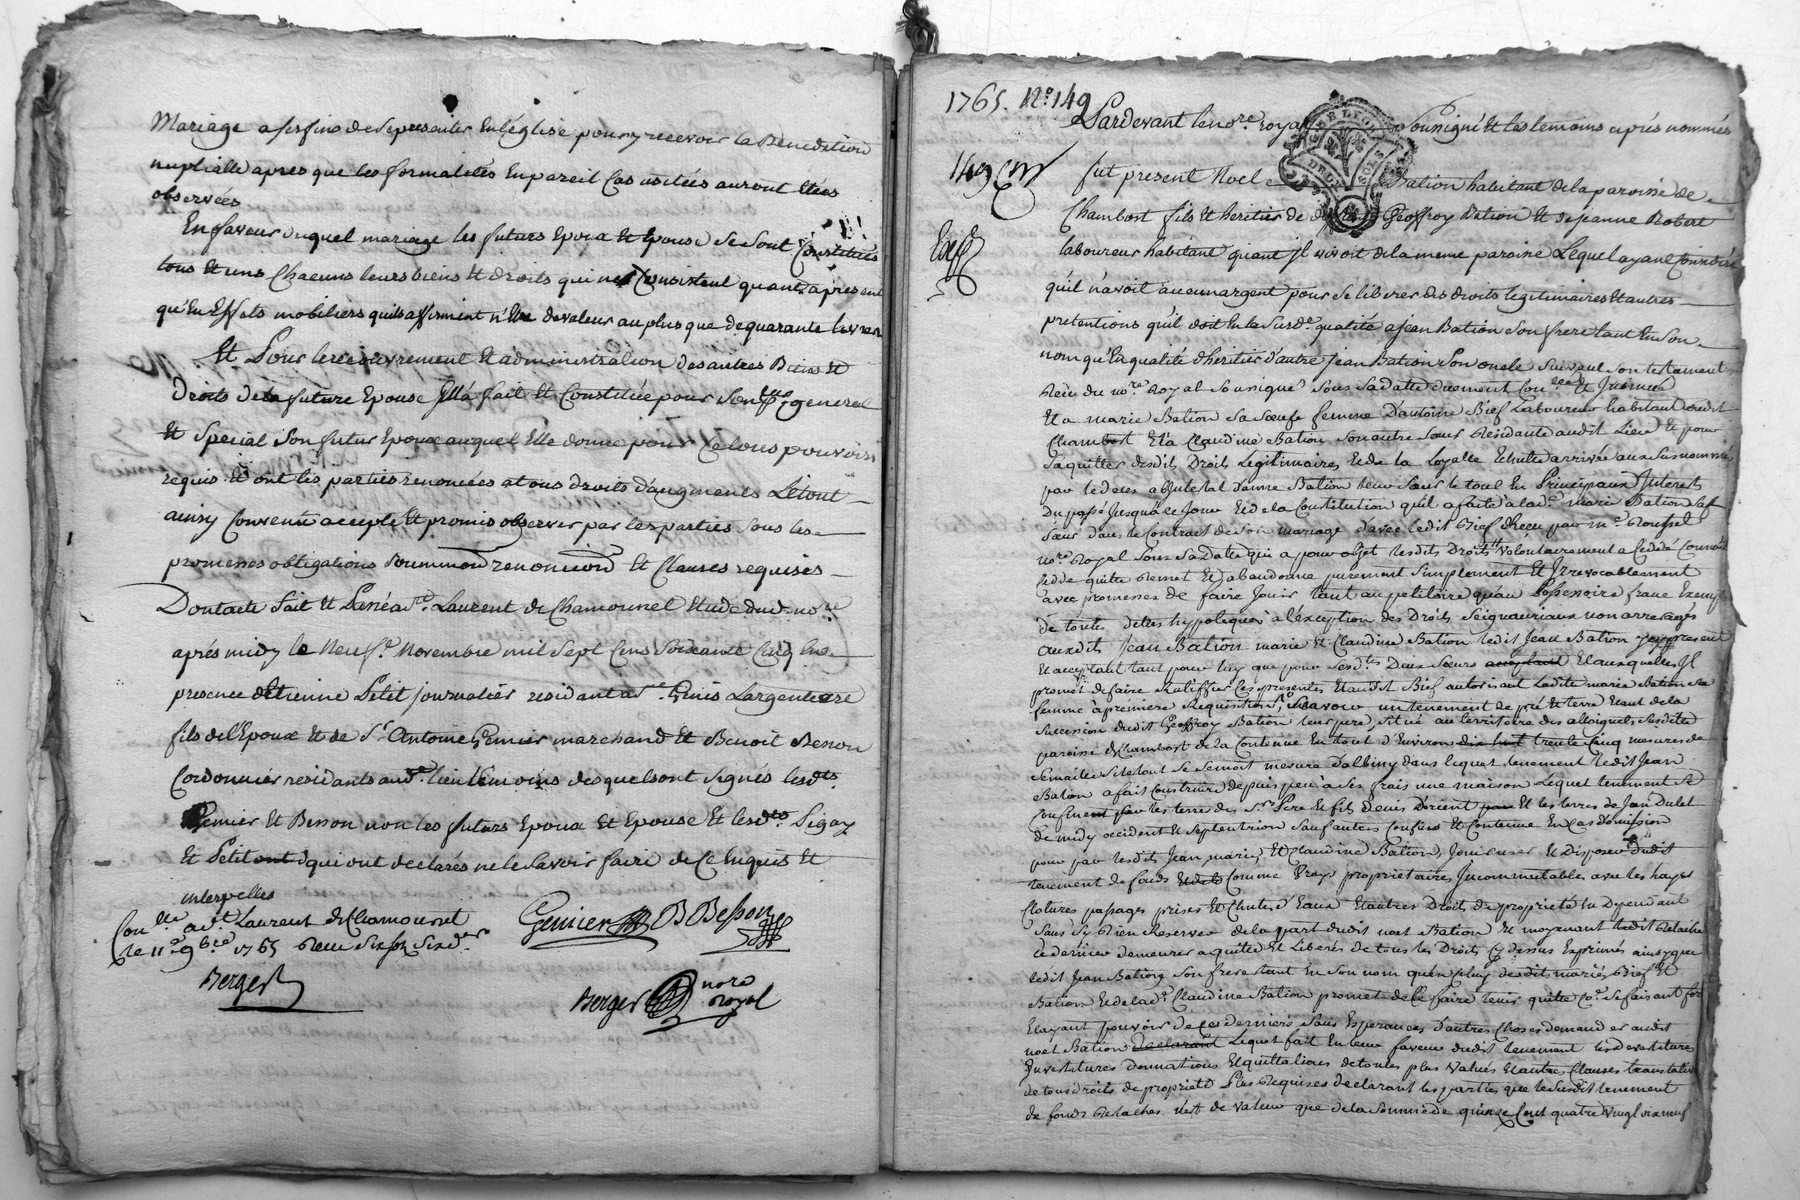 Mariage a ses fins de se presenter En l'église pour y recevoir la Benediction
nuptialle apres que les formalités En pareil Cas usitées auront Etées
observées
En faveur duquel mariage les futurs Epoux Et Epouse se sont Constitués
tous Et uns Chacuns leurs biens Et droits qui ne Consistent quant apresent
qu'En Effets mobiliers quils affirment n'Etre de valeur au plus que de quarante livres
Et Pour le recouvrement Et administration des autres Biens Et
Droits de la future Epouse Ella fait Et Constitué pour son general
Et special son futur Epoux auquel Elle donne pour Ce tous pouvoirs
requis Et ont les parties renoncées a tous droits d'augments Le tout
ainsy Convenu accepté Et promis observer par les parties sous les
promesses obligations soummõns renonciõns Et Clauses requises
Dont acte Fait Et Passé a St. Laurent de Chamousset Etude dud. nore.
après midy le Neuf e. Novembre mil sept Cens soixante Cinq En
presence d'Etienne Petit journalier residant a St. Genis Largentiere
fils de l'Epoux Et de Sr. Antoine Genier marchand Et Benoit Besson
Cordonnier residants aud. lieu temoins desquels ont signés lesdts.
Genier Et Besson non les futurs Epoux Et Epouse Et lesdts. Pegay
Et Petit ont qui ont declarés ne le savoir faire de Ce Enquis Et
interpellés
Conlle. a St. Laurent de Chamousset
le 11e. 9bre. 1765 Recu
Genier B Besson
Berger
Berger nore royal
1765. N° 149
Pardevant le nore. royal soussigné Et les temoins après nommés
149
fut present Noel Bation habitant de la paroisse de
Chambost fils Et heritier de Geoffroy Bation Et de jeanne Robert
laboureur habitant quant Jl vivoit de la meme paroisse Lequel ayant Considéré
qu'il n'avoit aucun argent pour se liberer des droits legitimaires Et autres
pretentions qu'il doit En la susde. qualité a jean Bation son frere tant En son
nom qu'En qualité d'heritier d'autre jean Bation son oncle suivant son testament
Reçu du nore. Royal soussigné sous sa datte duement Conllé. Et Jnsinué
Et a marie Bation sa sœur femme d'antoine Bief Laboureur habitant audit
Chambost Et a Claudine Bation son autre sœur Residante audit Lieu Et pour
s'aquitter desdits Droits Legitimaires Et de la Loyalle Echutte arrivée aux susnommés
par le deces abjntestat d'anne Bation leur sœur le tout En Principaux Jnterets
du passé jusqua Ce jour Et de la Constitution qu'il a faite a lade. marie Bation sad.
sœur dans le Contract de son mariage d'avec ledit Bief Recu par me. Roussel
nore. Royal sous sa datte qui a pour objet lesdits Droits volontairement a Cedé Comme il
Cede quitte Remet Et abandonne purement simplement Et Jrrevocablement
avec promesse de faire jouir tant au petitoire quau Possessoire franc Exempt
de toutes dettes hypoteques a l'exception des Droits seigneuriaux non arreragés
auxdits Jean Bation marie Et Claudine Bation ledit Jean Bation jcy present
Et acceptant tant pour luy que pour sesdtes. Deux sœurs acceptant Et auxquelles Jl
promet de faire Ratiffier Ces presentes Etaudit Bief autorisant Ladite marie Bation sa
femme à premiere Requisition, savoir un tenement de pré Et terre Etant de la
succession dudit Geoffroy Bation leur pere, situé au territoire des alloignets susdite
paroisse de Chambost de la Contenue En tout d'Environ dix huit trente Cinq mesures de
semaille si le tout se semoit mesure d'albiny dans lequel tenement ledit Jean
Bation a fait Construire depuis peu à ses frais une maison Lequel tenement se
Confinent par les terre des Srs. Pere Et fils Denis d'orient Et les terres de Jean Dulet
de midy occident Et septentrion sauf autres Confins Et Contenue En Cas d'omission
pour par lesdits Jean, marie, Et Claudine Bation, Jouir user Et disposer dudit
tenement de fonds Comme Vrays proprietaires Jncommutables avec les hayes
Clotures passages prises Et Chutes d'Eaux Et autres Droits de proprieté En Dependant
sans sy Rien Reserver de la part dudit noel Bation Et moyenant ledit Relache
Ce dernier demeurer aquitté Et Liberés de tous les Droits Cy dessus Exprimés ainsy que
ledit Jean Bation son frere tant En son nom qu'En Celuy desdit mariés Bief Et
Bation Et de lade. Claudine Bation promet de le faire tenir quitte Co. se faisant fort
Et ayant pouvoir de Ces derniers sans Esperances d'autres Choses demander audit
noel Bation declarant Lequel fait En leur faveur dudit tenement les devestitures
Jnvestitures donnations Et quittations de toutes plus values Et autres Clauses translatives
de tous droits de proprieté Plus Requises declarant les parties que le susdit tenement
de fonds Relachés n'est de valeur que de la somme de quinze Cent quatre vingt dixneuf